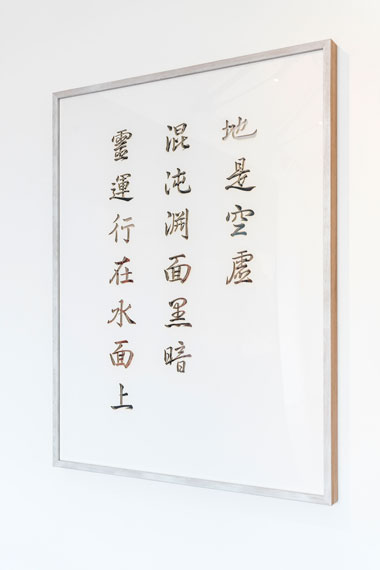 地是空虛
混沌淵面黑暗
靈運行在水面上